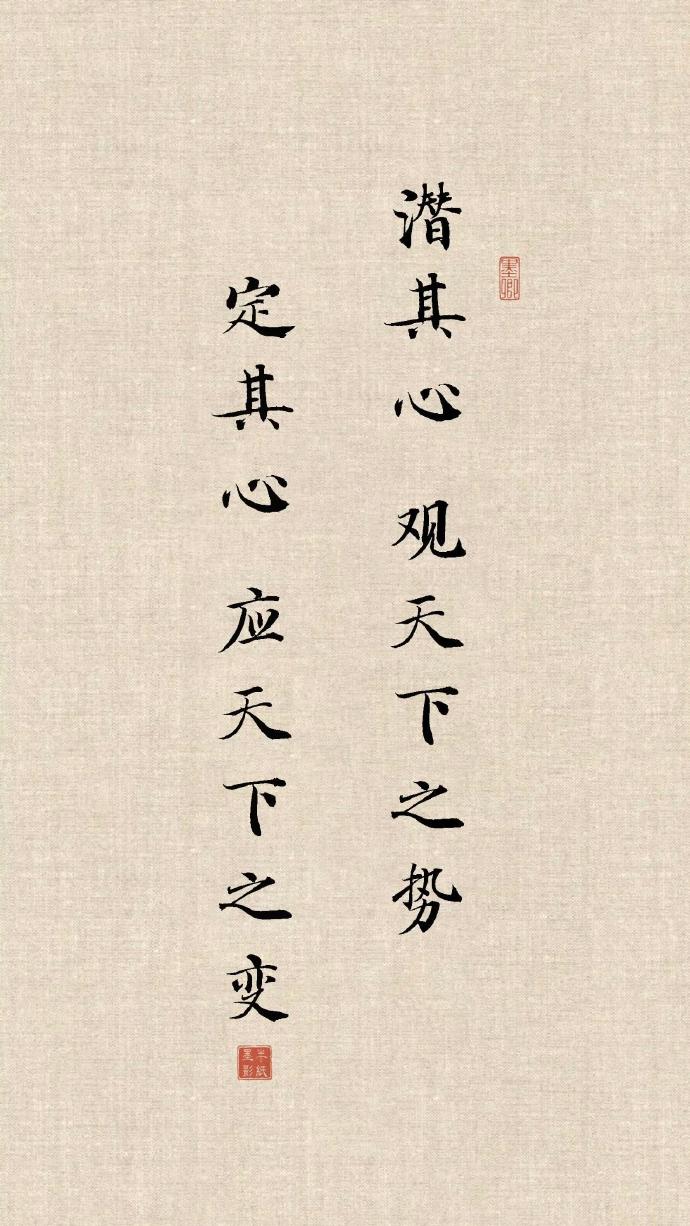 潜其心 观天下之势
定其心 应天下之变
墨卿
半纸墨影